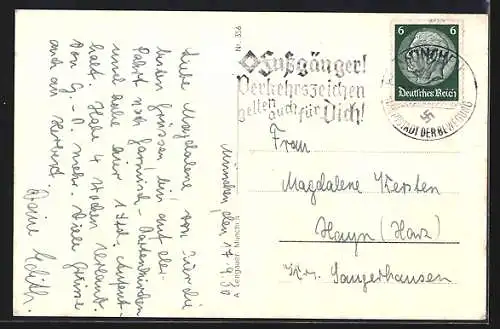 Liebe Magdalene von
hier Grüssen bin auf der
Fahrt nach Garmisch-Partenkirchen
und habe nur 1 Std. Aufent-
halt. Habe 4 Wochen Urlaub.
von G.-P. mehr. Viele Grüsse
auch an Herbert.
Deine Edith.
München, den 17.9.
Nr. 356
A. Lengauer, München
Fußgänger!
Verkehrszeichen
gelten auch für Dich!
MÜNCHEN
HAUPTSTADT DER BEWEGUNG
6 6
Deutsches Reich
Frau
Magdalene Kersten
Hayn (Harz)
Kr. Sangerhausen